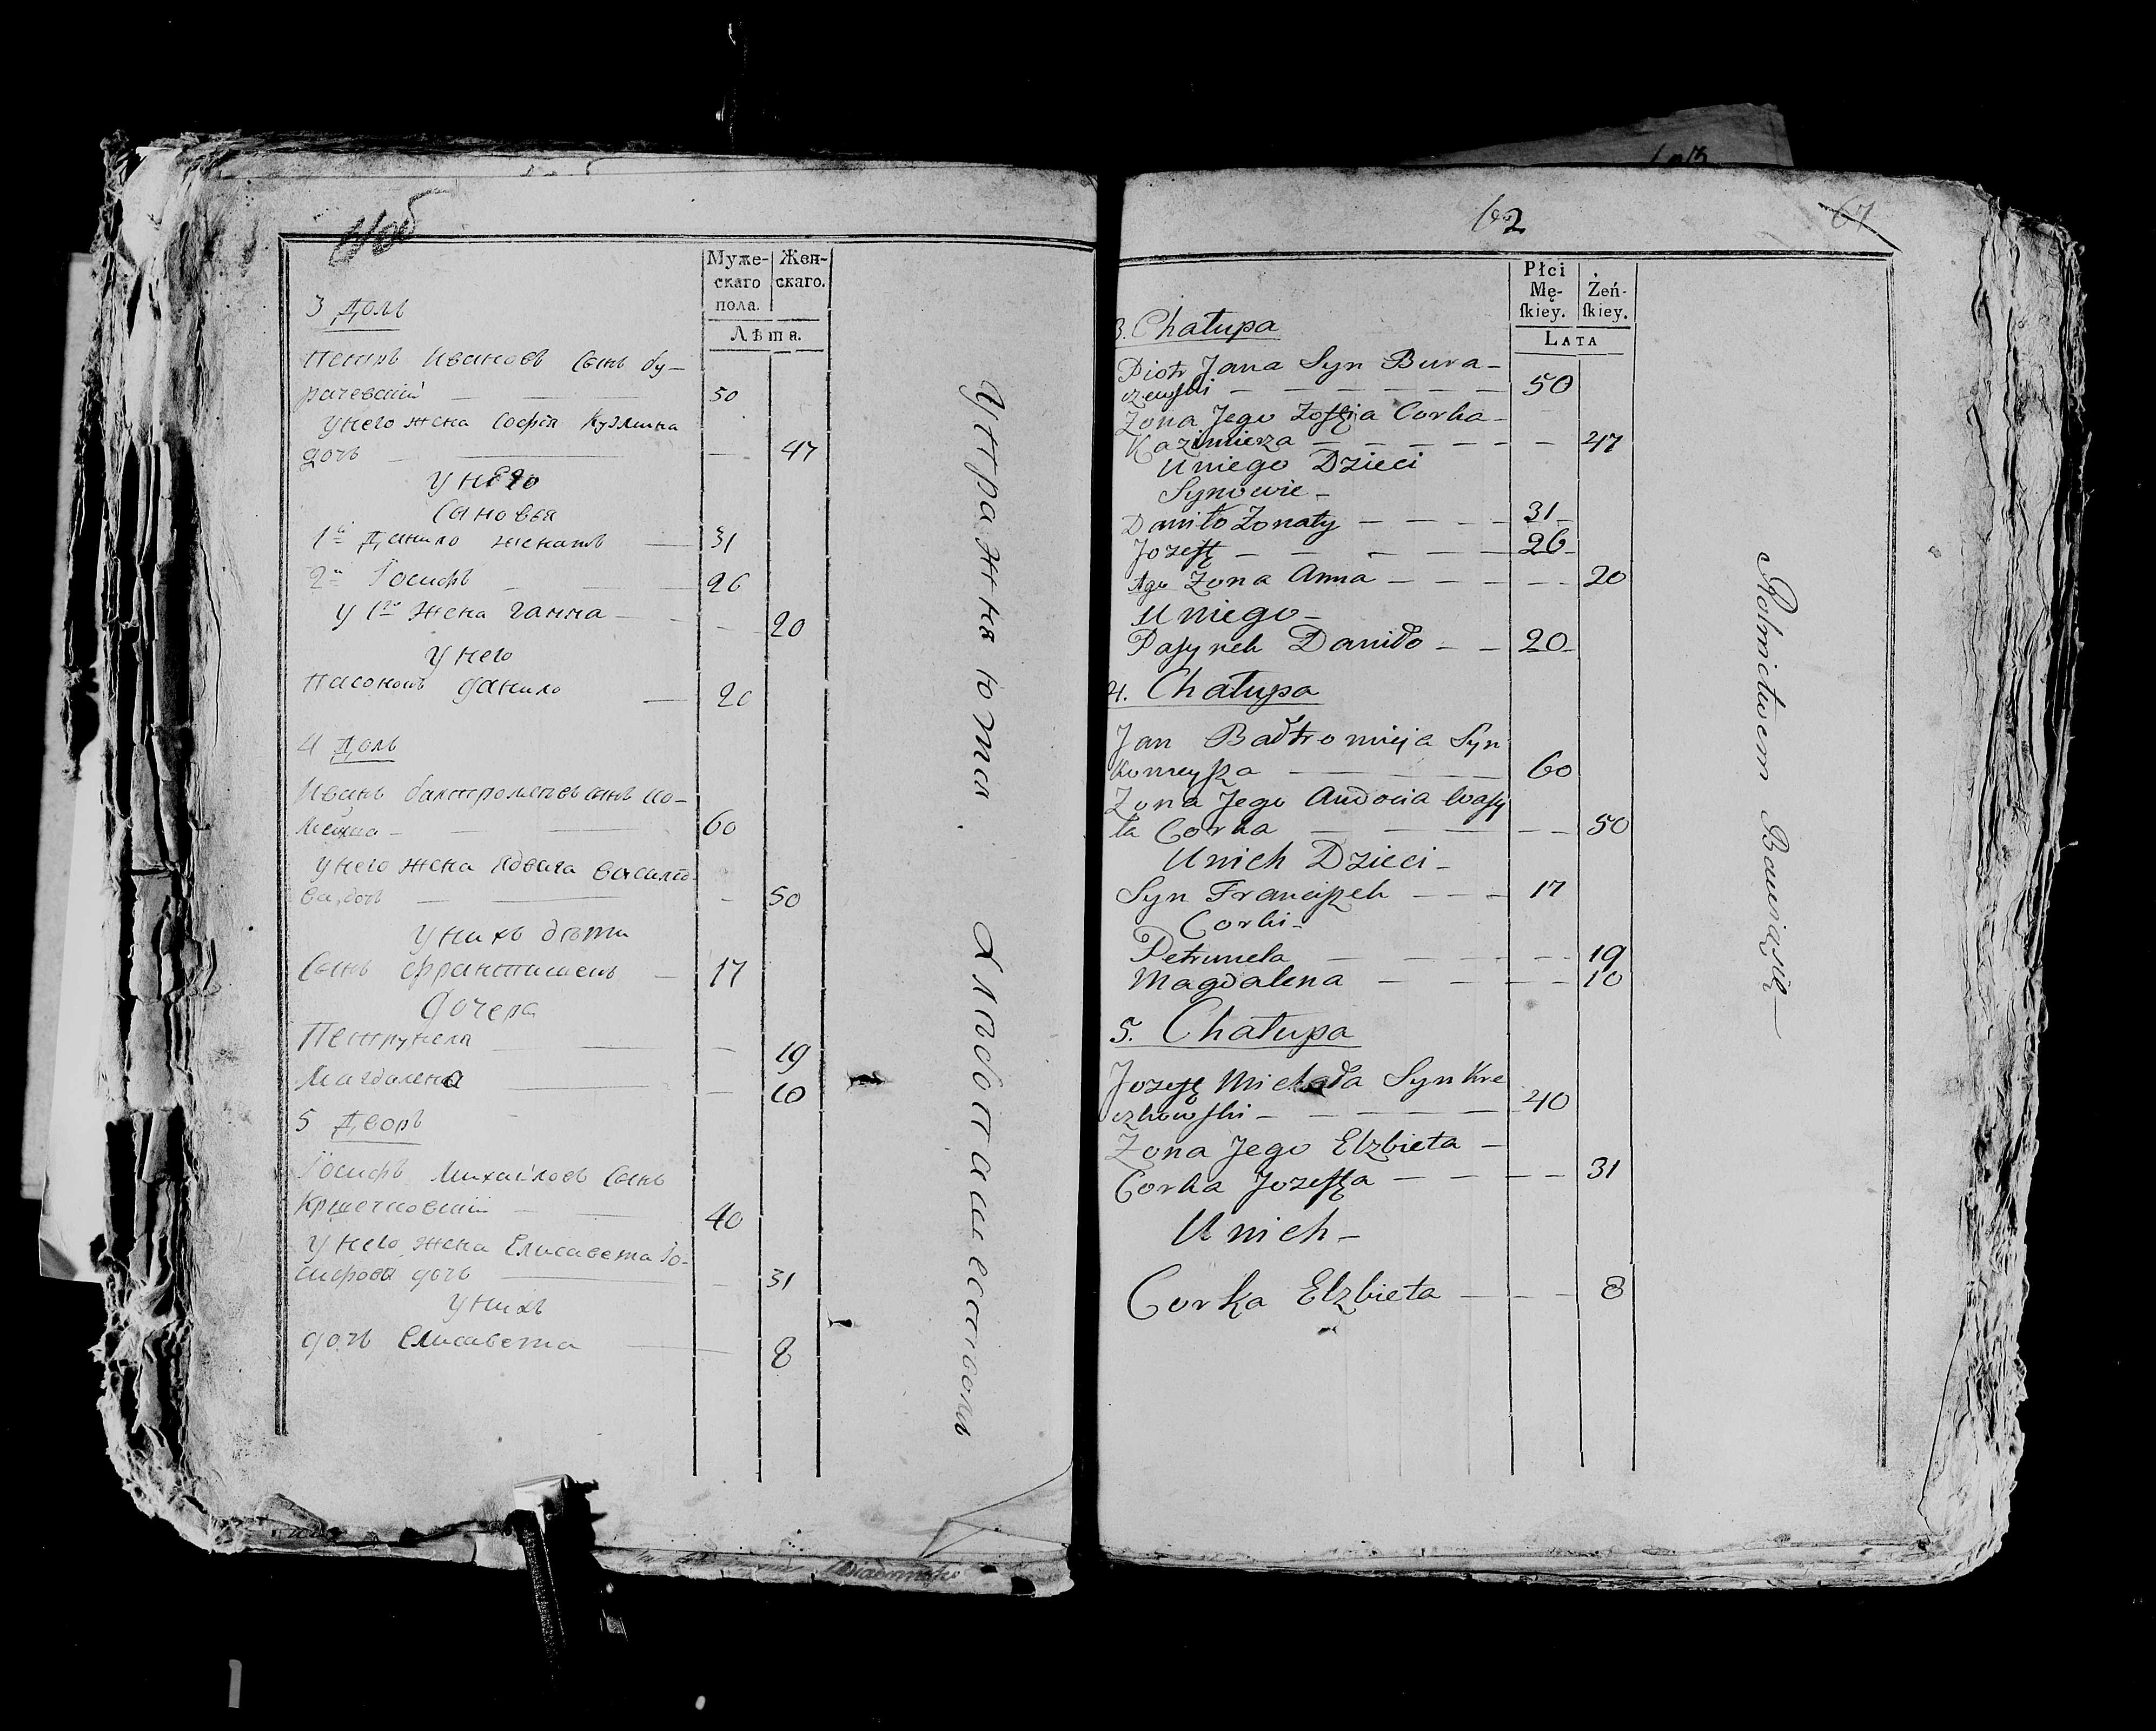 Муже-
скаго
пола.
Жен-
скаго.
Лѣта.
3 Домъ
Петръ Ивановъ Сынъ бу-
рачевскій 50
унего жена Софія Кузмина
дочь 47
унего
Сыновья
1й Данило женатъ 31
2й Іосифъ 26
у 1го жена ганна 20
унего
пасонокъ данило 20
4 Домъ
Иванъ балтромеевъ сынъ ко-
мейша 60
унего жена Ядвига василіо-
ва дочь 50
унихъ дѣти
Сынъ францишекъ 17
дочера
Петрунеля 19
Магдалена 10
5 Дворъ
Іосифъ Михайловъ Сынъ
Кршечковскій 40
унего жена Елисавета Іо-
сифова дочь 31
унихъ
дочь Елисавета 8
Упражняются Хлѣбопашеством
62
67
Płci
Mę-
ſkiey.
Żeń-
ſkiey.
LATA
3. Chałupa
Piotr Jana Syn Bura-
czewſki 50
Zona Jego Zofija Corka
Kazimierza 47
Uniego Dzieci
Synowie
Daniło Zonaty 31
Jozeff 26
1go Zona Anna 20
Uniego
Paſynek Daniło 20
4. Chałupa
Jan Bałtromieja Syn
Komeyſza 60
Zona Jego Audocia Waſy
ła Corka 50
Unich Dzieci
Syn Franciſzek 17
Corki
Petrunela 19
Magdalena 10
5. Chałupa
Jozeff Michała Syn Krze
czkowſki 40
Zona Jego Elzbieta
Corka Jozeffa 31
Unich
Corka Elzbieta 8
Rolnictwem Bawiąsię